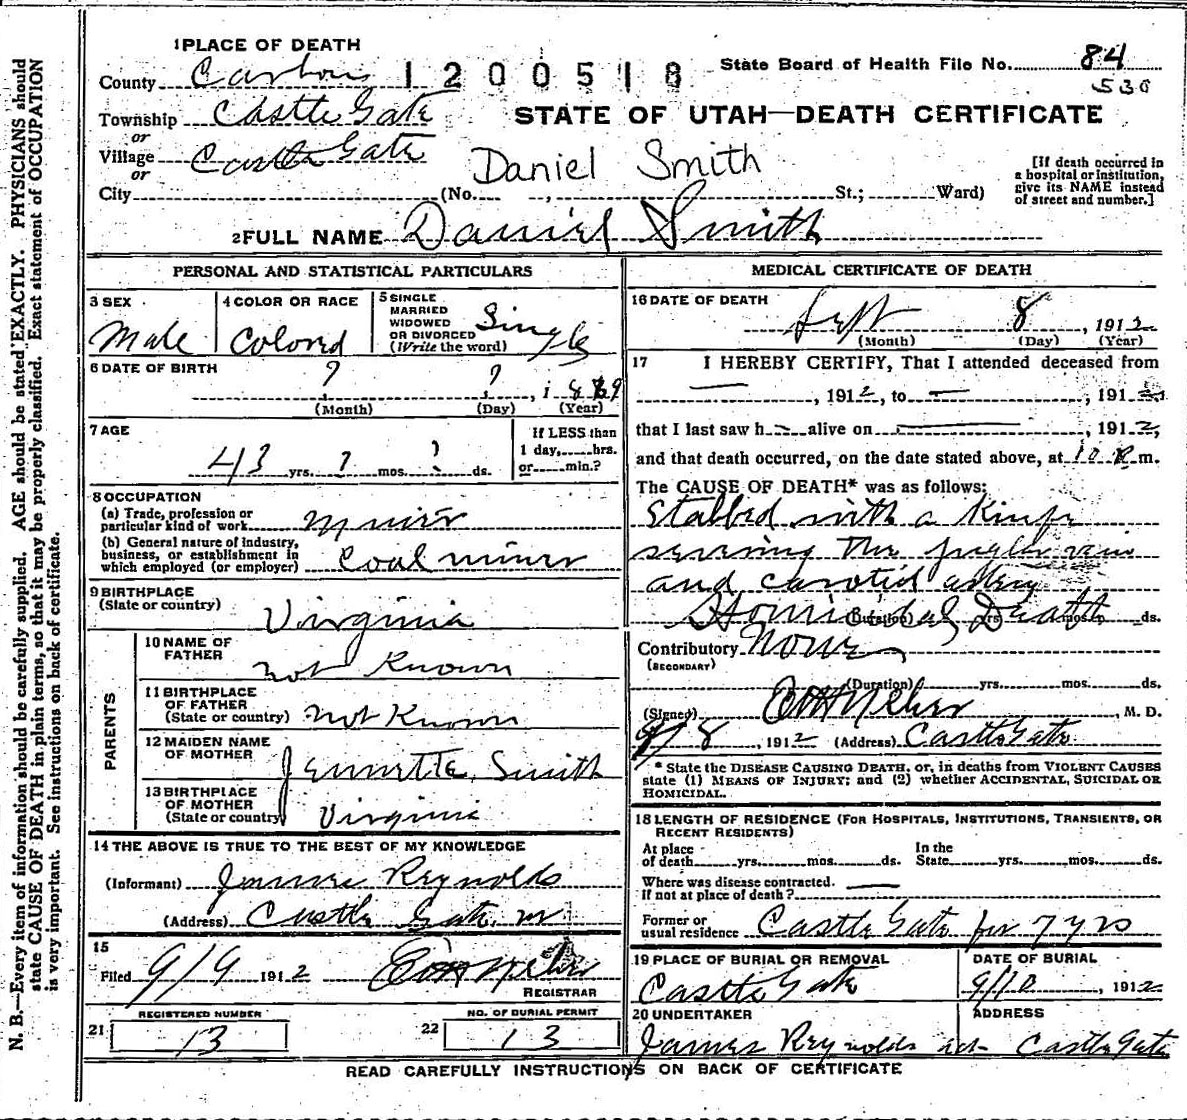 N. B.—Every item of information should be carefully supplied. AGE should be stated EXACTLY. PHYSICIANS should
state CAUSE OF DEATH in plain terms, so that it may be properly classified. Exact statement of OCCUPATION
is very important. See instructions on back of certificate.
1 PLACE OF DEATH
County Carbon 1200518 State Board of Health File No. 84
530
Township Castle Gate STATE OF UTAH—DEATH CERTIFICATE
or
Village Castle Gate Daniel Smith
or
City (No. , St.; Ward)
[If death occurred in
a hospital or institution,
give its NAME instead
of street and number.]
2 FULL NAME Daniel Smith
PERSONAL AND STATISTICAL PARTICULARS
3 SEX
Male
4 COLOR OR RACE
Colored
5 SINGLE
MARRIED
WIDOWED
OR DIVORCED
(Write the word)
Single
6 DATE OF BIRTH ? ? , 1869
(Month) (Day) (Year)
7 AGE
43 yrs. ? mos. ? ds.
If LESS than
1 day, hrs.
or min.?
8 OCCUPATION
(a) Trade, profession or
particular kind of work Miner
(b) General nature of industry,
business, or establishment in
which employed (or employer) Coal miner
9 BIRTHPLACE
(State or country) Virginia
PARENTS
10 NAME OF
FATHER not Known
11 BIRTHPLACE
OF FATHER
(State or country) not Known
12 MAIDEN NAME
OF MOTHER Jennette Smith
13 BIRTHPLACE
OF MOTHER
(State or country) Virginia
14 THE ABOVE IS TRUE TO THE BEST OF MY KNOWLEDGE
(Informant) Reynolds
(Address) Castle Gate
15
Filed 9/9 1912
REGISTRAR
REGISTERED NUMBER
21 13
NO. OF BURIAL PERMIT
22 13
MEDICAL CERTIFICATE OF DEATH
16 DATE OF DEATH
Sept 8 , 1912
(Month) (Day) (Year)
17 I HEREBY CERTIFY, That I attended deceased from
— , 1912, to — , 191
that I last saw h— alive on — , 1912,
and that death occurred, on the date stated above, at 10 P m.
The CAUSE OF DEATH* was as follows:
Stabbed with a Knife
severing the jugler vein
and carotid artery
Homicidal Death
(Duration) yrs. mos. ds.
Contributory None
(SECONDARY)
(Duration) yrs. mos. ds.
(Signed) , M. D.
9/8 , 1912 (Address) Castle Gate
* State the DISEASE CAUSING DEATH, or, in deaths from VIOLENT CAUSES
state (1) MEANS OF INJURY; and (2) whether ACCIDENTAL, SUICIDAL OR
HOMICIDAL.
18 LENGTH OF RESIDENCE (FOR HOSPITALS, INSTITUTIONS, TRANSIENTS, OR
RECENT RESIDENTS)
At place
of death yrs. mos. ds.
In the
State yrs. mos. ds.
Where was disease contracted. —
if not at place of death?
Former or
usual residence Castle Gate for 7 yrs
19 PLACE OF BURIAL OR REMOVAL
Castle Gate
DATE OF BURIAL
9/10 , 1912
20 UNDERTAKER
James Reynolds act
ADDRESS
Castle Gate
READ CAREFULLY INSTRUCTIONS ON BACK OF CERTIFICATE